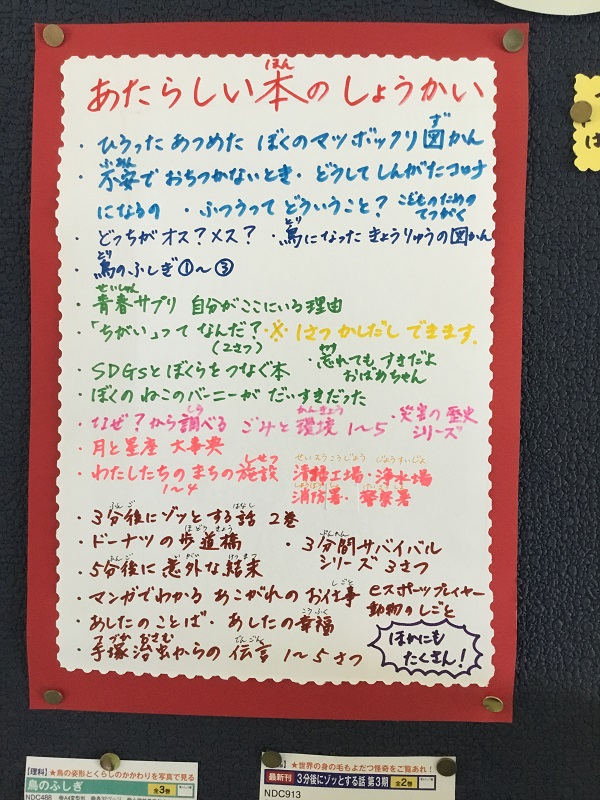 ほん
あたらしい本のしょうかい
・ひろった あつめた ぼくのマツボックリ図かん
ず
・不安で おちつかないとき・どうしてしんがたコロナ
ふあん
になるの ・ふつうって どういうこと? こどものための
てつがく
・どっちがオス?メス? ・鳥になった きょうりゅうの図かん
とり
・鳥のふしぎ①〜③
とり
せいしゅん
・青春サプリ 自分がここにいる理由
・「ちがい」って なんだ?・※ 1さつ かしだし できます。
(2さつ)
・SDGsとぼくらをつなぐ本 ・忘れてもすきだよ
おばあちゃん
・ぼくのねこのバーニーが だいすきだった
・なぜ?から調べる ごみと環境 1〜5 ・災害の歴史
シリーズ
しら
かんきょう
・月と星座 大事典
・わたしたちのまちの施設 清掃工場・浄水場
しせつ
せいそうこうじょう じょうすいじょ
1〜4 消防署・警察署
・3分後にゾッとする話 2巻
ふんご はなし
・ドーナツの歩道橋 ・3分間サバイバル
ほどうきょう
シリーズ 3さつ
・5分後に意外な結末
ふんご いがい けつまつ
・マンガでわかる あこがれのお仕事 eスポーツプレイヤー
しごと
動物のしごと
・あしたのことば・あしたの幸福
こうふく
・手塚治虫からの 伝言 1〜5さつ
てづか おさむ
でんごん
ほかにも
たくさん!
は
【理科】★鳥の姿形とくらしのかかわりを写真で見る
鳥のふしぎ 全3巻
NDC488
★世界の身の毛もよだつ怪奇をご覧あれ!
最新刊 3分後にゾッとする話 第3期 全2巻
NDC913